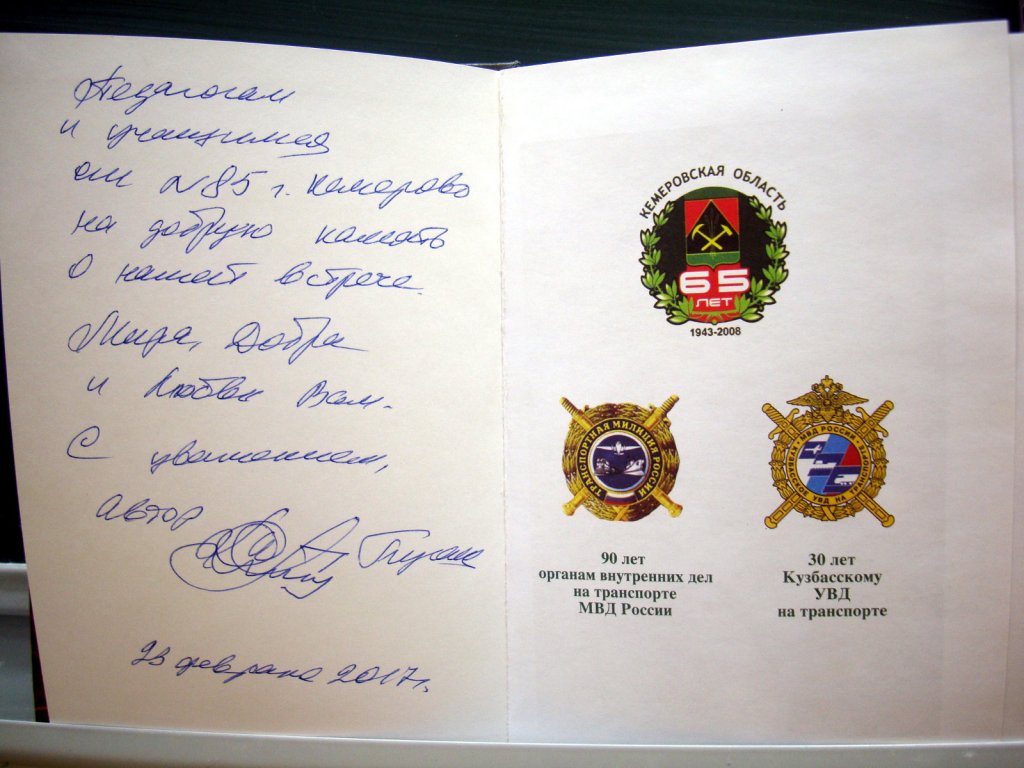 Педагогам
и учащимся
сш №85 г. Кемерово
на добрую память
о нашей встрече.
Мира, Добра
и Любви Вам.
С уважением,
автор
23 февраля 2017 г.
КЕМЕРОВСКАЯ ОБЛАСТЬ
65
ЛЕТ
1943-2008
ТРАНСПОРТНАЯ МИЛИЦИЯ РОССИИ
90 лет
органам внутренних дел
на транспорте
МВД России
МВД РОССИИ
КУЗБАССКОЕ УВД НА ТРАНСПОРТЕ
30 лет
Кузбасскому
УВД
на транспорте